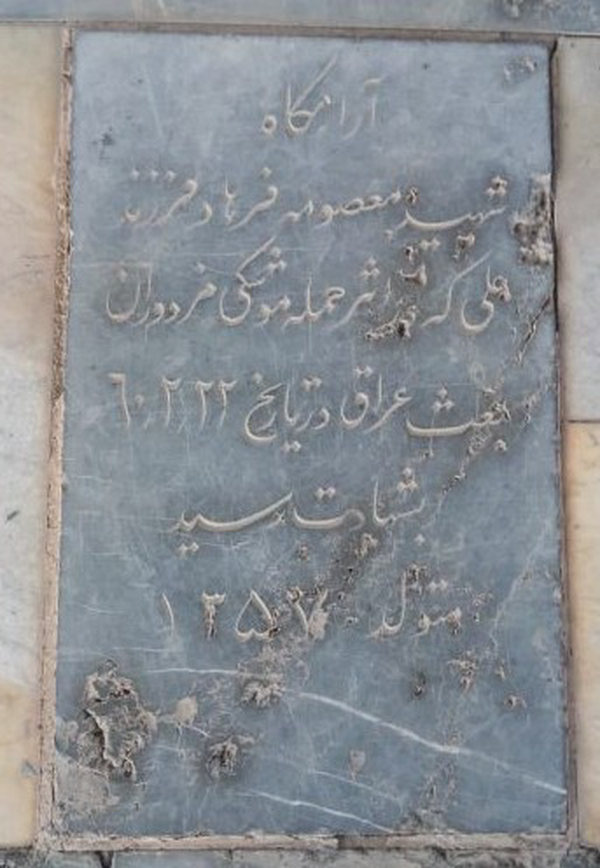 آرامگاه
شهید معصومه فرهاد فرزند
علی که در اثر حمله موشکی مزدوران
بعث عراق در تاریخ ٦٠٫٢٫٢٢
بشهادت رسید
متولد ۱۳۵۷